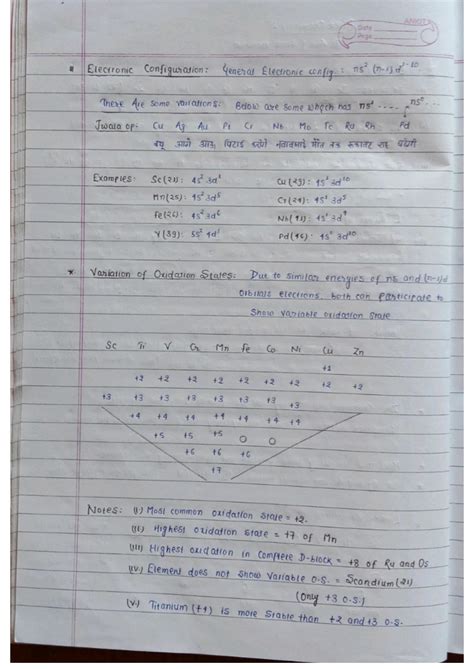 Date
Page
Electronic Configuration: General Electronic config.: ns² (n-1)d¹⁻¹⁰
There Are some variations: Below are some which has ns¹ .... ns⁰...
Cu Ag Au Pt Cr Nb Mo Tc Ru Rh Pd
Examples: Sc(21): 4s² 3d¹ Cu(29): 4s¹ 3d¹⁰
Mn(25): 4s² 3d⁵ Cr(24): 4s¹ 3d⁵
Fe(26): 4s² 3d⁶
Y(39): 5s² 4d¹
* Variation of Oxidation States: Due to similar energies of ns and (n-1)d
orbitals electrons, both can participate to
Show variable oxidation state
Sc Ti V Cr Mn Fe Co Ni Cu Zn
+1
+2 +2 +2 +2 +2 +2 +2 +2 +2
+3 +3 +3 +3 +3 +3 +3 +3
+4 +4 +4 +4 +4 +4 +4
+5 +5 +5 O O
+6 +6 +6
+7
Notes: (i) Most common oxidation state = +2.
(ii) Highest oxidation state = +7 of Mn
(iii) Highest oxidation in Complete D-block = +8 of Ru and Os
(iv.) Element does not Show Variable O.S. = Scandium(21)
(Only +3 O.S.)
(v.) Titanium (+4) is more Stable than +2 and +3 O.S.